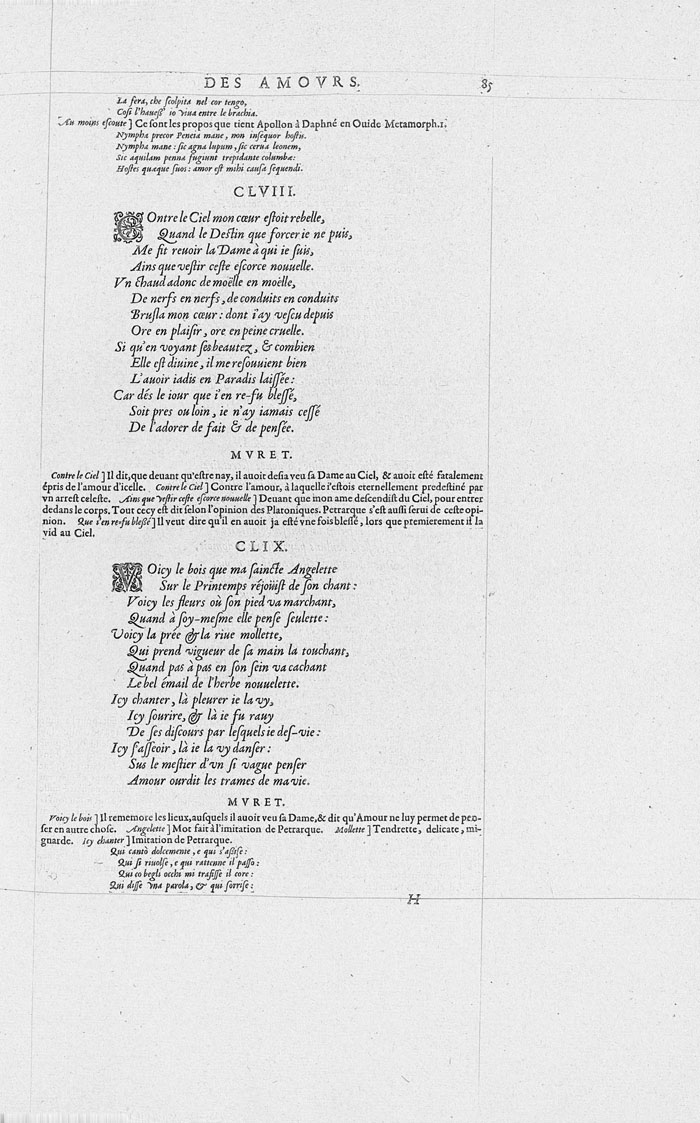 DES AMOVRS. 85
La fera, che scolpita nel cor tengo,
Cosi l'hauess' io viua entre le brachia.
Au moins escoute] Ce sont les propos que tient Apollon à Daphné en Ouide Metamorph.1.
Nympha precor Peneia mane, non insequor hostis.
Nympha mane: sic agna lupum, sic cerua leonem,
Sic aquilam penna fugiunt trepidante columbæ:
Hostes quæque suos: amor est mihi causa sequendi.
CLVIII.
COntre le Ciel mon cœur estoit rebelle,
Quand le Destin que forcer ie ne puis,
Me fit reuoir la Dame à qui ie suis,
Ains que vestir ceste escorce nouuelle.
Vn chaud adonc de moëlle en moëlle,
De nerfs en nerfs, de conduits en conduits
Brusla mon cœur: dont i'ay vescu depuis
Ore en plaisir, ore en peine cruelle.
Si qu'en voyant ses beautez, & combien
Elle est diuine, il me resouuient bien
L'auoir iadis en Paradis laissée:
Car dés le iour que i'en re-fu blessé,
Soit pres ou loin, ie n'ay iamais cessé
De l'adorer de fait & de pensée.
MVRET.
Contre le Ciel] Il dit, que deuant qu'estre nay, il auoit desia veu sa Dame au Ciel, & auoit esté fatalement
épris de l'amour d'icelle. Contre le Ciel] Contre l'amour, à laquelle i'estois eternellement predestiné par
vn arrest celeste. Ains que vestir ceste escorce nouuelle] Deuant que mon ame descendist du Ciel, pour entrer
dedans le corps. Tout cecy est dit selon l'opinion des Platoniques. Petrarque s'est aussi serui de ceste opi-
nion. Que i'en re-fu blessé] Il veut dire qu'il en auoit ja esté vne fois blessé, lors que premierement il la
vid au Ciel.
CLIX.
VOicy le bois que ma saincte Angelette
Sur le Printemps réjoüist de son chant:
Voicy les fleurs où son pied va marchant,
Quand à soy-mesme elle pense seulette:
Voicy la prée & la riue mollette,
Qui prend vigueur de sa main la touchant,
Quand pas à pas en son sein va cachant
Le bel émail de l'herbe nouuelette.
Icy chanter, là pleurer ie la vy,
Icy sourire, & là ie fu rauy
De ses discours par lesquels ie des-vie:
Icy s'asseoir, là ie la vy danser:
Sus le mestier d'vn si vague penser
Amour ourdit les trames de ma vie.
MVRET.
Voicy le bois] Il rememore les lieux, ausquels il auoit veu sa Dame, & dit qu'Amour ne luy permet de pen-
ser en autre chose. Angelette] Mot fait à l'imitation de Petrarque. Mollette] Tendrette, delicate, mi-
gnarde. Icy chanter] Imitation de Petrarque.
Qui cantò dolcemente, e qui s'assise:
Qui si riuolse, e qui ratenne il passo:
Qui co begli occhi mi trafisse il core:
Qui disse vna parola, & qui sorrise:
H